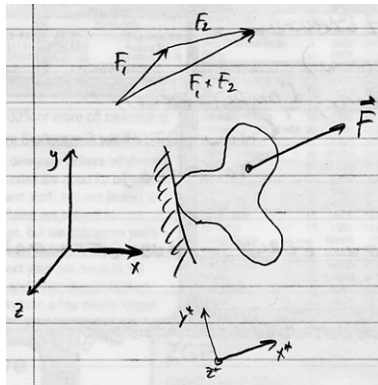 F₂
F₁
F₁ + F₂
F⃗
y
x
z
y*
x*
z*